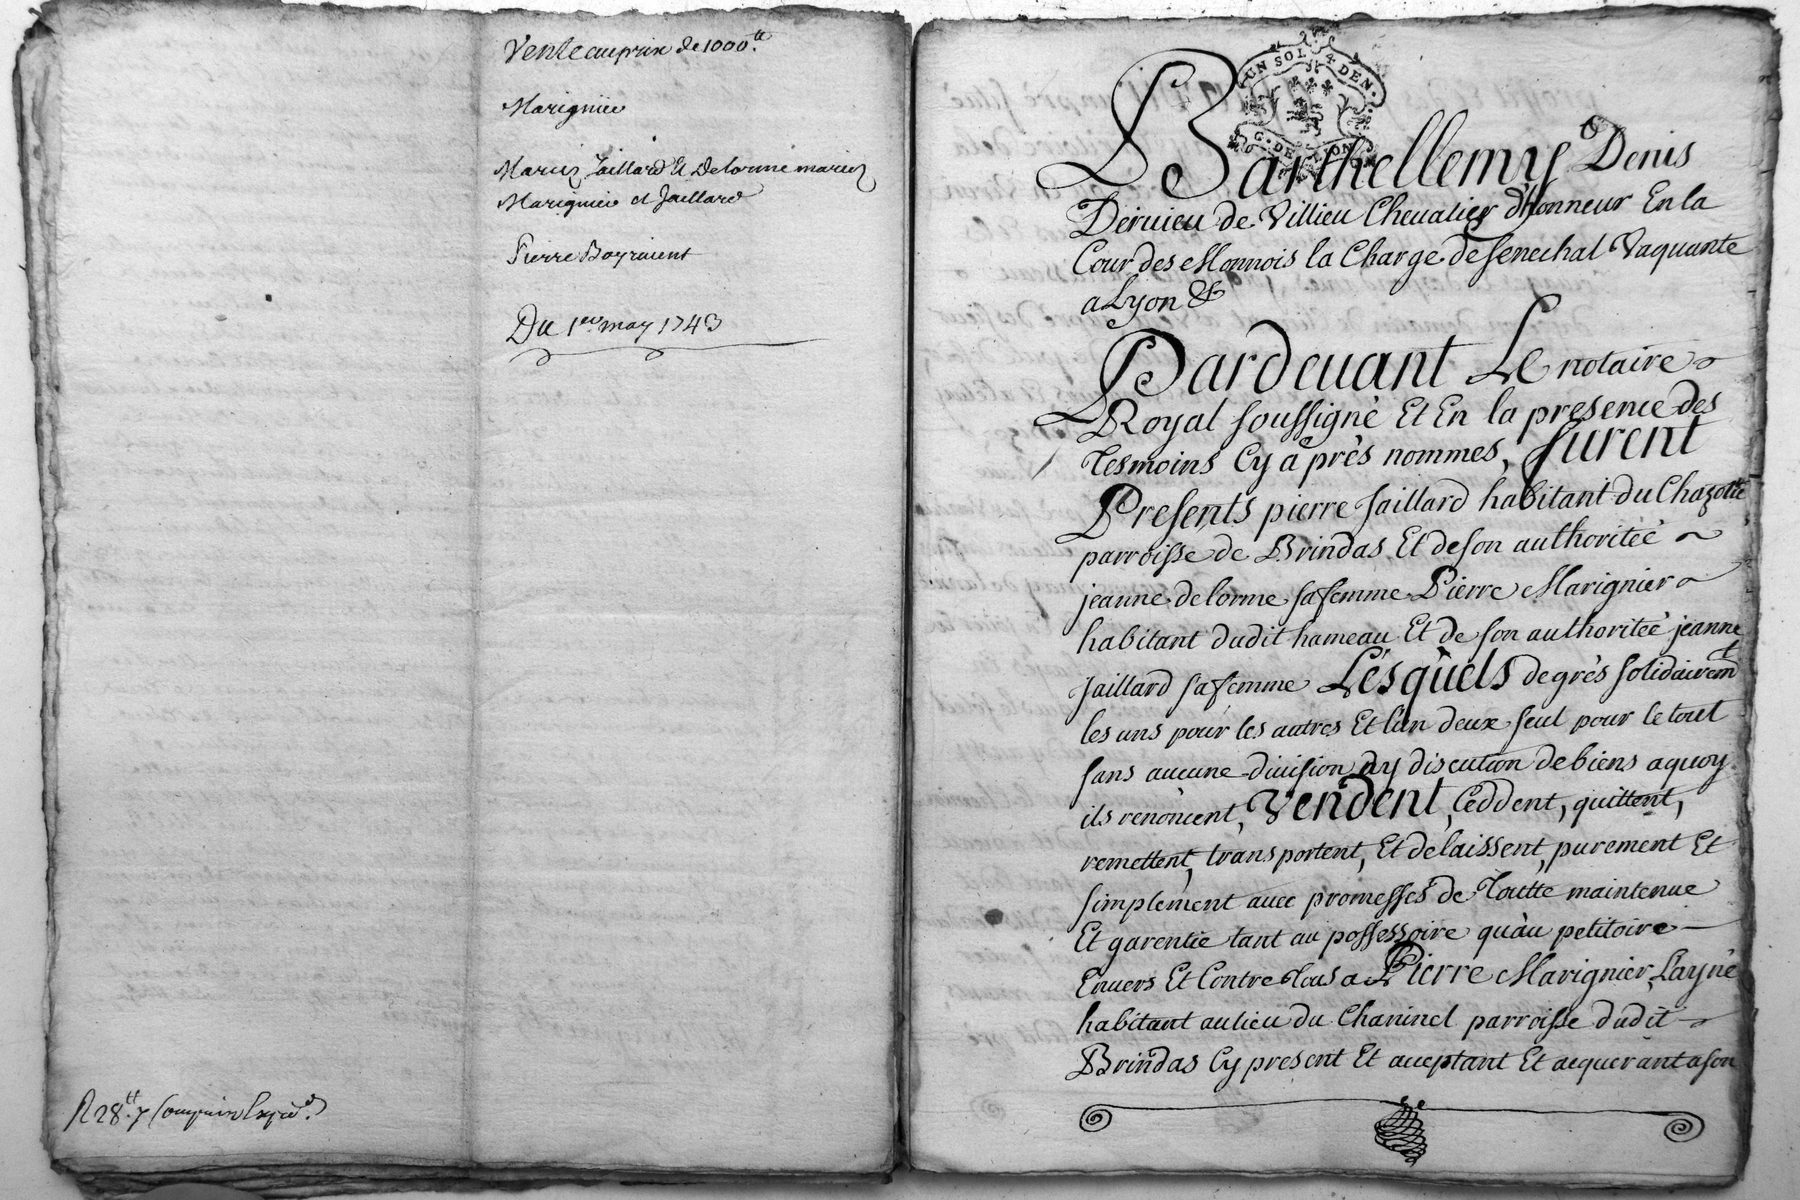 Vente au prix de 1000.tt
Marignier
Mariez Jaillard Et Delorme mariez
Marignier et Jaillard
Pierre
Du 1er may 1743
R 28tt. 7 Compris
UN SOL 4 DEN.
G. DE LYON
Barthellemy Denis
Deruieu de Villieu Cheualier d'honneur En la
Cour des Monnois la Charge de senechal Vaquante
a Lyon &
Pardeuant Le notaire
Royal soussigné Et En la presence des
Tesmoins Cy après nommes, furent
Presents pierre Jaillard habitant du Chazotte
parroisse de Brindas Et de son authoriteé
jeanne delorme sa femme Pierre Marignier
habitant dudit hameau Et de son authoriteé jeanne
Jaillard sa femme Lésquels de grès solidairemt
les uns pour les autres Et l'un deux seul pour le tout
sans aucune diuision ny discution de biens a quoy
ils renoncent, Vendent, Ceddent, quittent,
remettent, transportent, Et délaissent, purement Et
simplement auec promesses de Toutte maintenue
Et garentie tant au possessoire qu'au petitoire
Enuers Et Contre Tous a Pierre Marignier Layné
habitant au lieu du parroisse dudit
Brindas Cy present Et acceptant Et acquerant a son